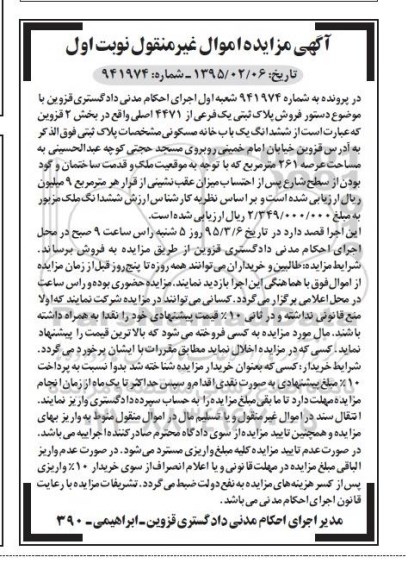 آگهی مزایده اموال غیرمنقول نوبت اول
تاریخ: ۱۳۹۵/۰۲/۰۶ ـ شماره: ۹۴۱۹۷۴
در پرونده به شماره ۹۴۱۹۷۴ شعبه اول اجرای احکام مدنی دادگستری قزوین با
موضوع دستور فروش پلاک ثبتی یک فرعی از ۴۴۷۱ اصلی واقع در بخش ۲ قزوین
که عبارت است از ششدانگ یک باب خانه مسکونی مشخصات پلاک ثبتی فوق الذکر
به آدرس قزوین خیابان امام خمینی روبروی مسجد حجتی کوچه عبدالحسینی به
مساحت عرصه ۲۶۱ مترمربع که با توجه به موقعیت ملک و قدمت ساختمان و گود
بودن از سطح شارع پس از احتساب میزان عقب نشینی از قرار هر مترمربع ۹ میلیون
ریال ارزیابی شده است و بر اساس نظریه کارشناس ارزش ششدانگ ملک مزبور
به مبلغ ۲/۳۴۹/۰۰۰/۰۰۰ ریال ارزیابی شده است.
این اجرا قصد دارد در تاریخ ۹۵/۳/۶ روز ۵ شنبه راس ساعت ۹ صبح در محل
اجرای احکام مدنی دادگستری قزوین از طریق مزایده به فروش برساند.
شرایط مزایده: طالبین و خریداران می توانند همه روزه تا پنج روز قبل از زمان مزایده
از اموال فوق با هماهنگی این اجرا بازدید نمایند. مزایده حضوری بوده و راس ساعت
در محل اعلامی برگزار می گردد. کسانی می توانند در مزایده شرکت نمایند که اولا
منع قانونی نداشته و در ثانی ۱۰٪ قیمت پیشنهادی خود را نقدا به همراه داشته
باشند. مال مورد مزایده به کسی فروخته می شود که بالاترین قیمت را پیشنهاد
نماید. کسی که در مزایده اخلال نماید مطابق مقررات با ایشان برخورد می گردد.
شرایط خریدار: کسی که بعنوان خریدار مزایده شناخته شد بدوا نسبت به پرداخت
۱۰٪ مبلغ پیشنهادی به صورت نقدی اقدام و سپس حداکثر تا یک ماه از زمان انجام
مزایده مهلت دارد تا مابقی مبلغ مزایده را به حساب سپرده دادگستری واریز نمایند.
انتقال سند در اموال غیرمنقول و یا تسلیم مال در اموال منقول منوط به واریز بهای
مزایده و همچنین تایید مزایده از سوی دادگاه محترم صادرکننده اجراییه می باشد.
در صورت عدم تایید مزایده کلیه مبلغ واریزی مسترد می شود. در صورت عدم واریز
الباقی مبلغ مزایده در مهلت قانونی و یا اعلام انصراف از سوی خریدار ۱۰٪ واریزی
پس از کسر هزینه های مزایده به نفع دولت ضبط می گردد. تشریفات مزایده با رعایت
قانون اجرای احکام مدنی می باشد.
مدیر اجرای احکام مدنی دادگستری قزوین ـ ابراهیمی ـ ۳۹۰